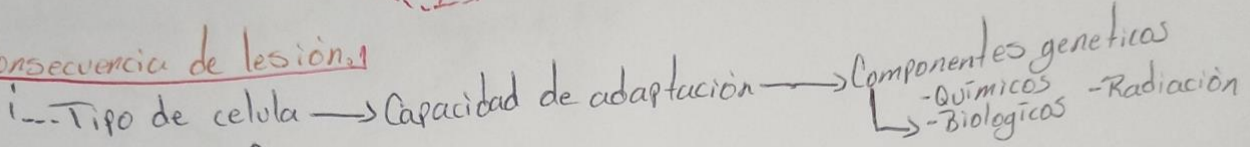 onsecuencia de lesión.1
i... Tipo de celula → Capacidad de adaptación → Componentes geneticos
-Químicos -Radiación
↳ -Biologicos